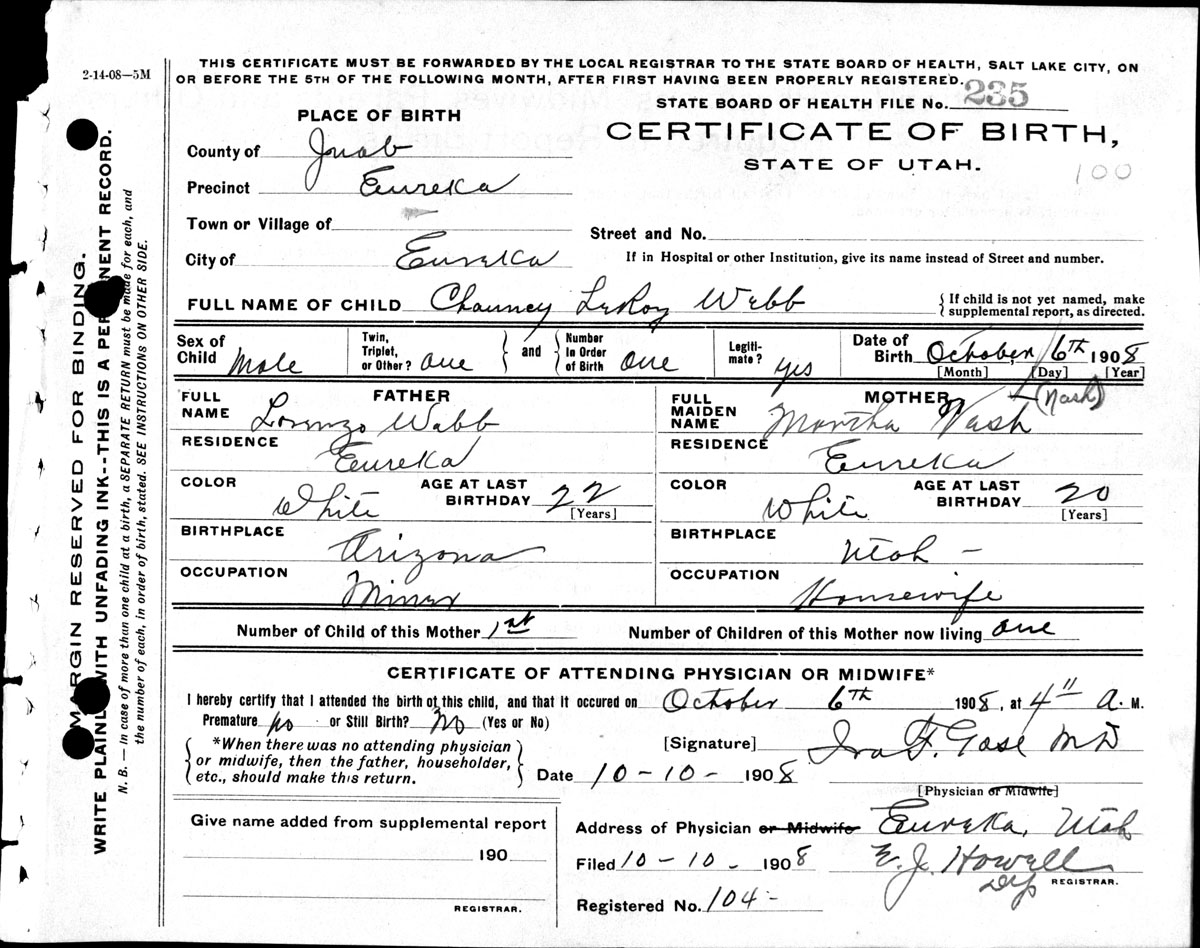 2-14-08—5M
THIS CERTIFICATE MUST BE FORWARDED BY THE LOCAL REGISTRAR TO THE STATE BOARD OF HEALTH, SALT LAKE CITY, ON
OR BEFORE THE 5TH OF THE FOLLOWING MONTH, AFTER FIRST HAVING BEEN PROPERLY REGISTERED.
STATE BOARD OF HEALTH FILE No. 235
PLACE OF BIRTH
CERTIFICATE OF BIRTH,
STATE OF UTAH.
100
County of Juab
Precinct Eureka
Town or Village of
Street and No.
City of Eureka
If in Hospital or other Institution, give its name instead of Street and number.
FULL NAME OF CHILD Chauncy LeRoy Webb
{If child is not yet named, make
supplemental report, as directed.
Sex of Child Male
Twin, Triplet, or Other? one
and
Number In Order of Birth one
Legiti- mate? yes
Date of Birth October 6th 1908
[Month] [Day] [Year]
FATHER
FULL NAME Lorenzo Webb
RESIDENCE Eureka
COLOR White
AGE AT LAST BIRTHDAY 22
[Years]
BIRTHPLACE Arizona
OCCUPATION Miner
MOTHER
(Nash)
FULL MAIDEN NAME Martha Nash
RESIDENCE Eureka
COLOR White
AGE AT LAST BIRTHDAY 20
[Years]
BIRTHPLACE Utah -
OCCUPATION Housewife
Number of Child of this Mother 1st
Number of Children of this Mother now living one
CERTIFICATE OF ATTENDING PHYSICIAN OR MIDWIFE*
I hereby certify that I attended the birth of this child, and that it occured on October 6th 1908, at 4" a. M.
Premature no or Still Birth? No (Yes or No)
{*When there was no attending physician
or midwife, then the father, householder,
etc., should make this return.}
[Signature] Ira F. Gose MD
Date 10-10- 1908
[Physician or Midwife]
Give name added from supplemental report
190
REGISTRAR.
Address of Physician or Midwife Eureka, Utah
Filed 10-10- 1908 E. J. Howell
Dep REGISTRAR.
Registered No. 104-
MARGIN RESERVED FOR BINDING.
WRITE PLAINLY WITH UNFADING INK--THIS IS A PERMANENT RECORD.
N. B. — In case of more than one child at a birth, a SEPARATE RETURN must be made for each, and
the number of each, in order of birth, stated. SEE INSTRUCTIONS ON OTHER SIDE.